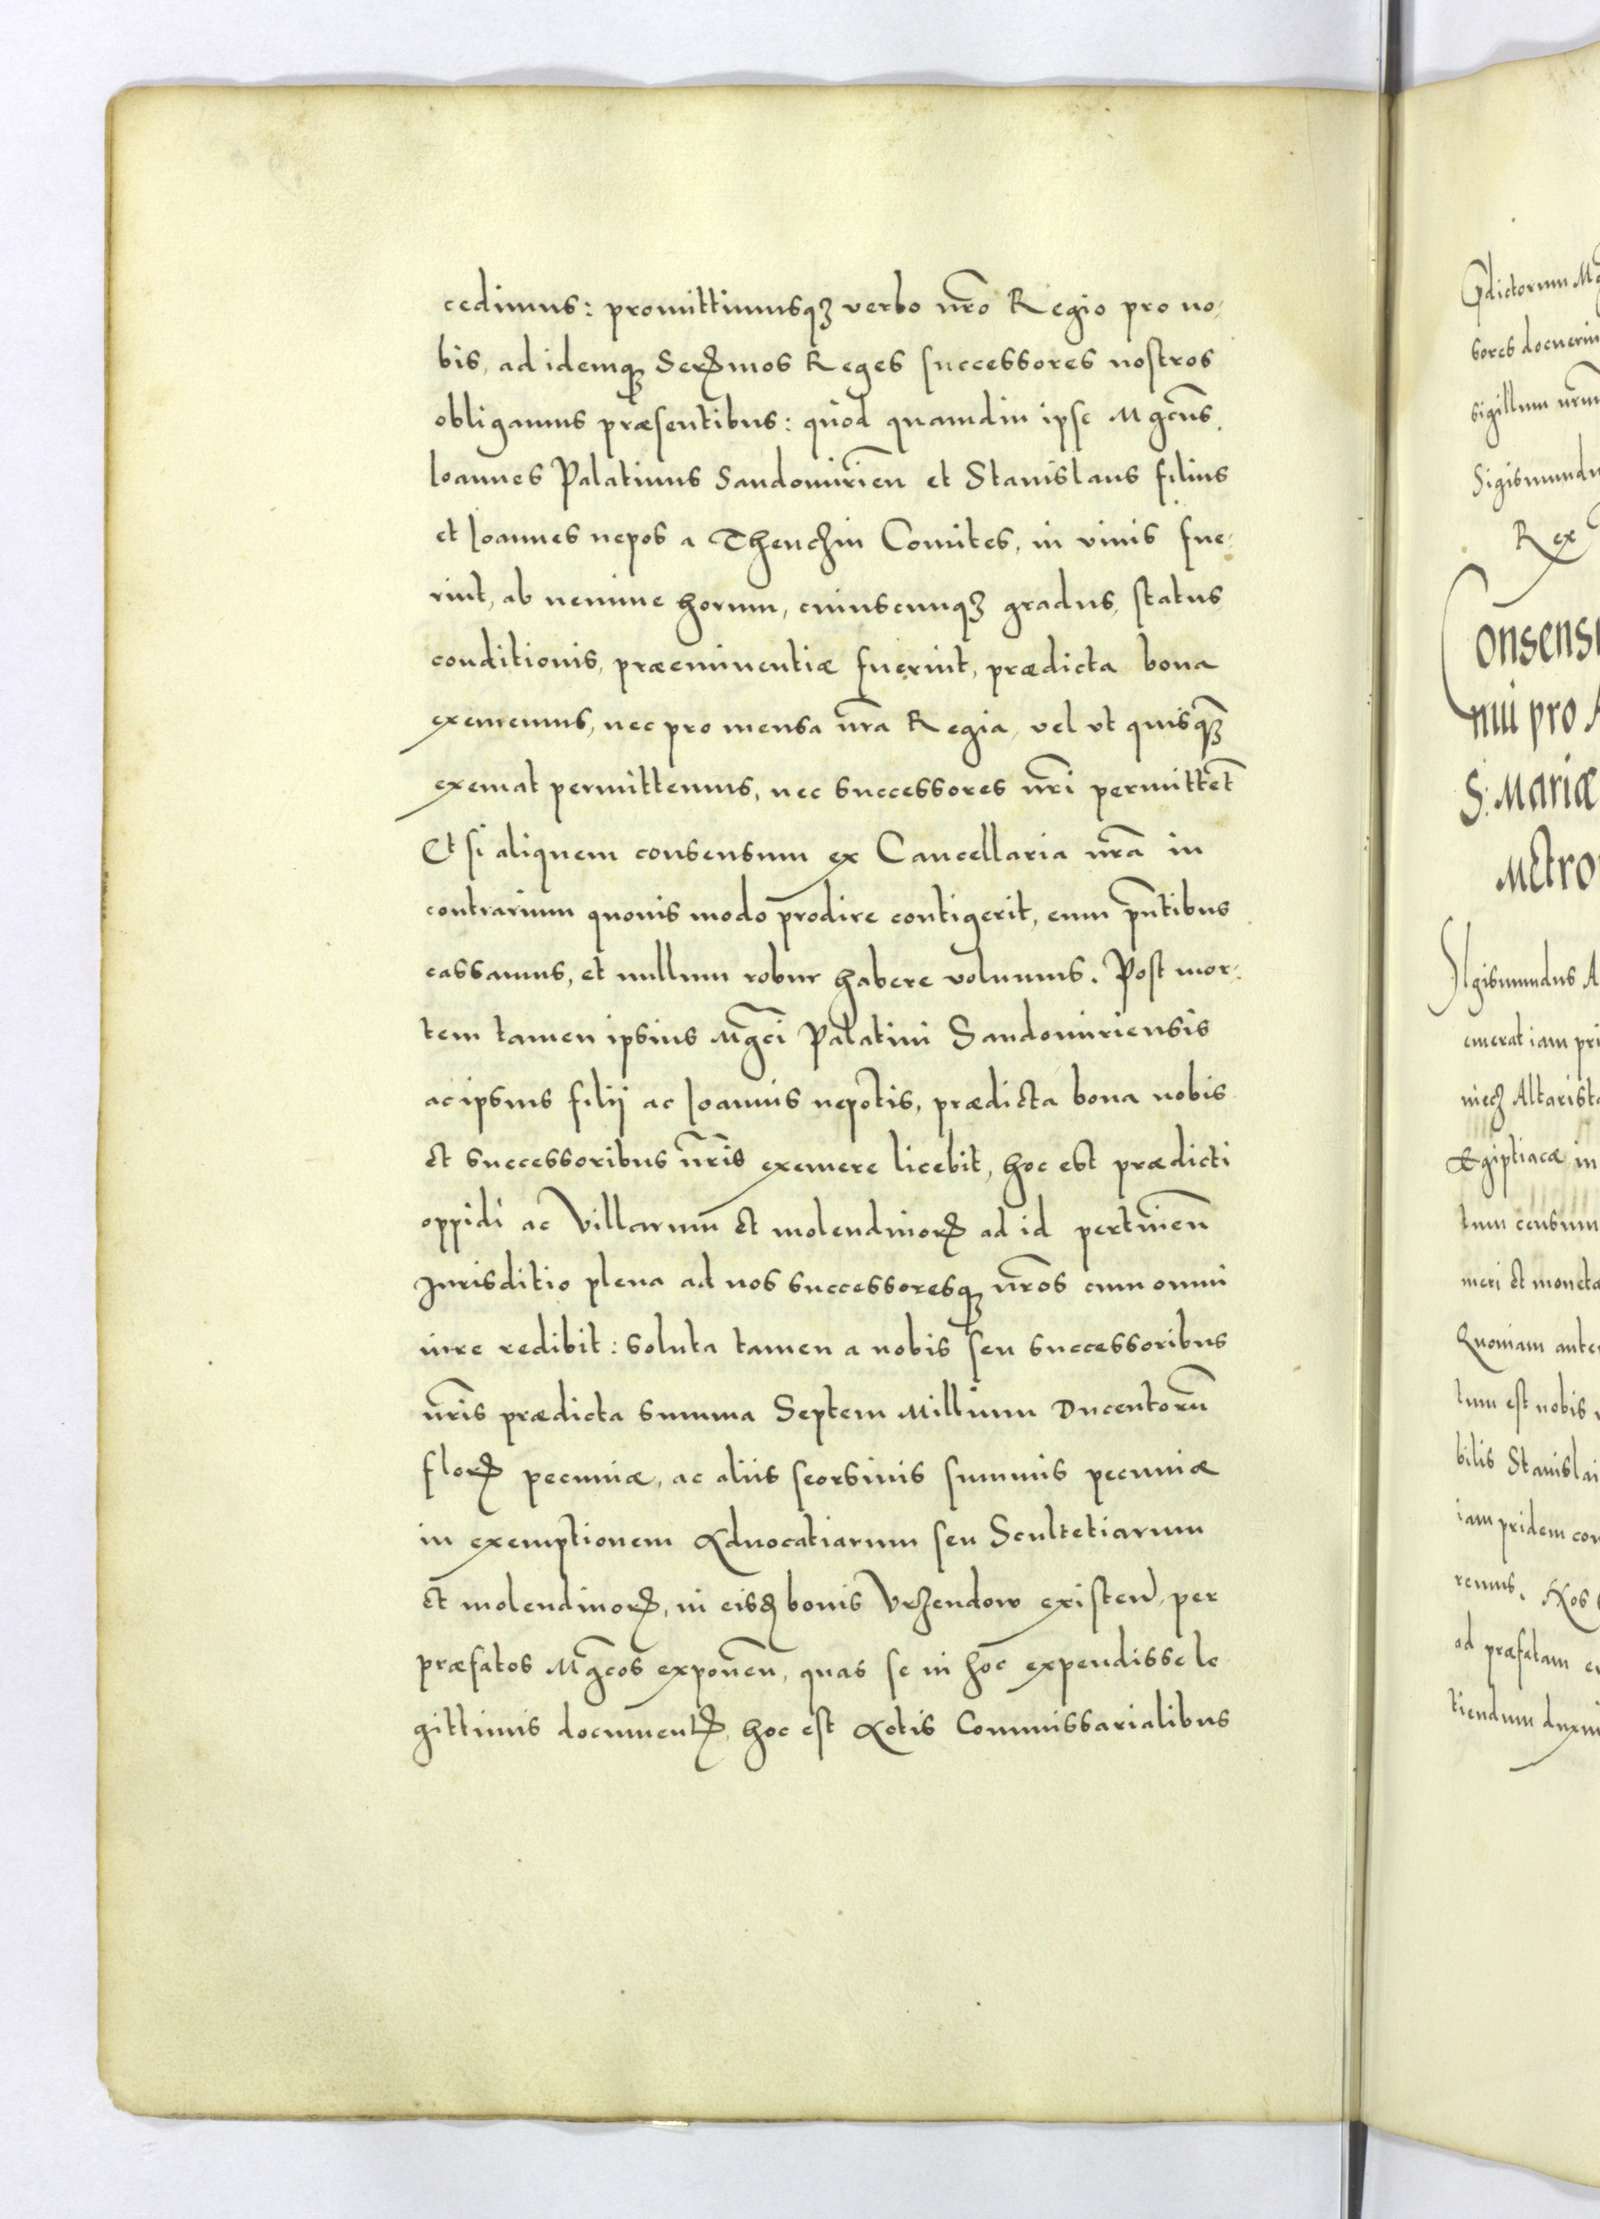 cedimus: promittimusqꝫ verbo nr̃o Regio pro no-
bis, ad idemqꝫ Serꝫmos Reges successores nostros
obligamus præsentibus: quòd quamdiu ipse Mgcũs.
Ioannes Palatinus Sandomirień et Stanislaus filius
et Ioannes nepos a Thenchin Comites, in viuis fue-
rint, ab nemine horum, cuiuscunqꝫ gradus, status
conditionis, præeminentiæ fuerint, prædicta bona
exememus, nec pro mensa nr̃a Regia, vel vt quisqꝫ
exemat permittemus, nec successores nr̃i permittẽt
Et si aliquem consensum ex Cancellaria nr̃a in
contrarium quouis modo prodire contigerit, eum pñtibus
cassamus, et nullum robur habere volumus. Post mor-
tem tamen ipsius Mgc̃i Palatini Sandomiriensis
ac ipsius filij ac Ioannis nepotis, prædicta bona nobis
et successoribus nr̃is exemere licebit, hoc est prædicti
oppidi ac Villarum et molendinorꝝ ad id pertineñ
Jurisditio plena ad nos successoresqꝫ nr̃os cum omni
iure redibit: soluta tamen a nobis seu successoribus
nr̃is prædicta summa Septem Millium Ducentorũ
florꝝ pecuniæ, ac aliis seorsiuis summis pecuniæ
in exemptionem Aduocatiarum seu Scultetiarum
et molendinorꝝ, in eisꝺ bonis Vrzendow existeñ, per
præfatos Mgc̃os exponeñ, quas se in hoc expendisse le
gittimis documentꝭ, hoc est Actis Commissarialibus
Pdictorum
sores docuerin
sigillum nr̃m
Sigismundu
Rex
Consensu
nii pro A
S. Mariæ
Metro
SIgismundus A
emerat iam pri
Altarista
Ægiptiacæ in
tum censum
meri et moneta
Quoniam aute
tum est nobis
bilis Stanislai
iam pridem con
remus. Nos
ad præfatam e
tiendum duxi